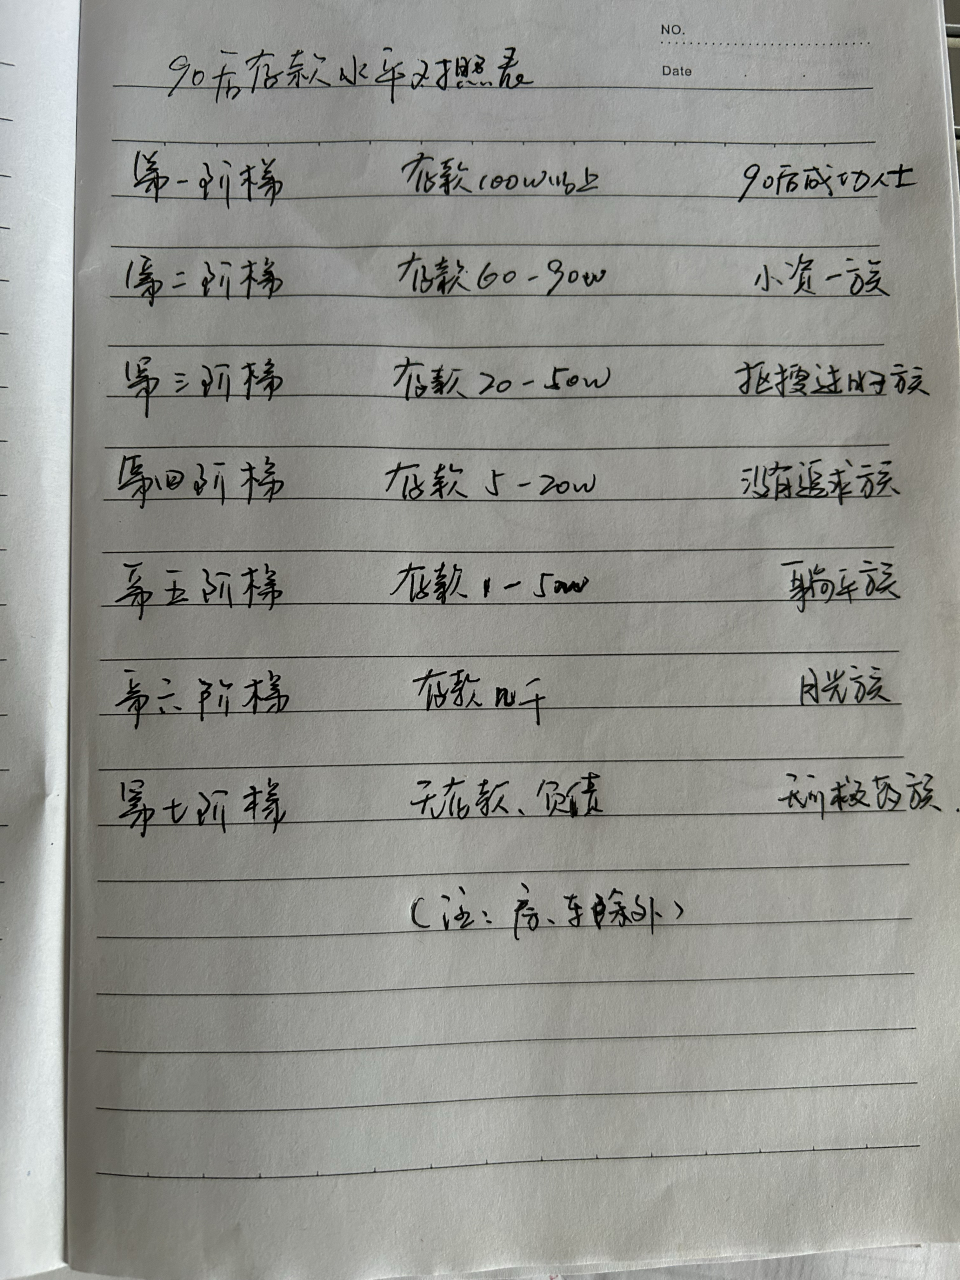 NO.
Date
90后存款水平对照表
第一阶梯 存款100W以上 90后成功人士
第二阶梯 存款60-90w 小资一族
第三阶梯 存款20-50w 抠搜过日子族
第四阶梯 存款5-20w 没有追求族
第五阶梯 存款1-5w 躺平族
第六阶梯 存款几千 月光族
第七阶梯 无存款、负债 无可救药族.
(注:房、车除外)